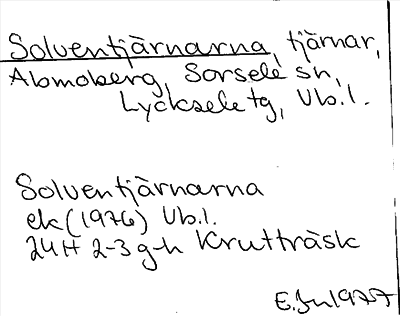 Solventjärnarna, tjärnar,
Abmoberg, Sorsele sn,
Lycksele tg, Vb.l.
Solventjärnarna
ek (1976) Vb.l.
24H 2-3 g-h Krutträsk
E. Jn 1977